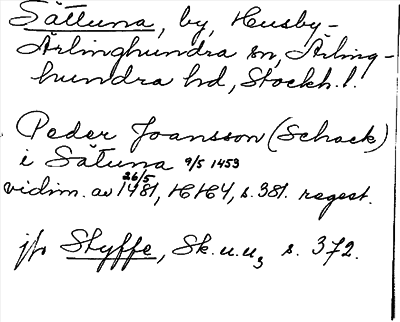 Sätuna, by, Husby-
Ärlinghundra sn, Ärling-
hundra hd, Stockh. l.
Peder Joansson (Schack)
i Sätuna 9/5 1453
vidim. av 26/5 1481, HH4, s. 381. regest.
jfr Styffe, Sk. u. u., s. 372.